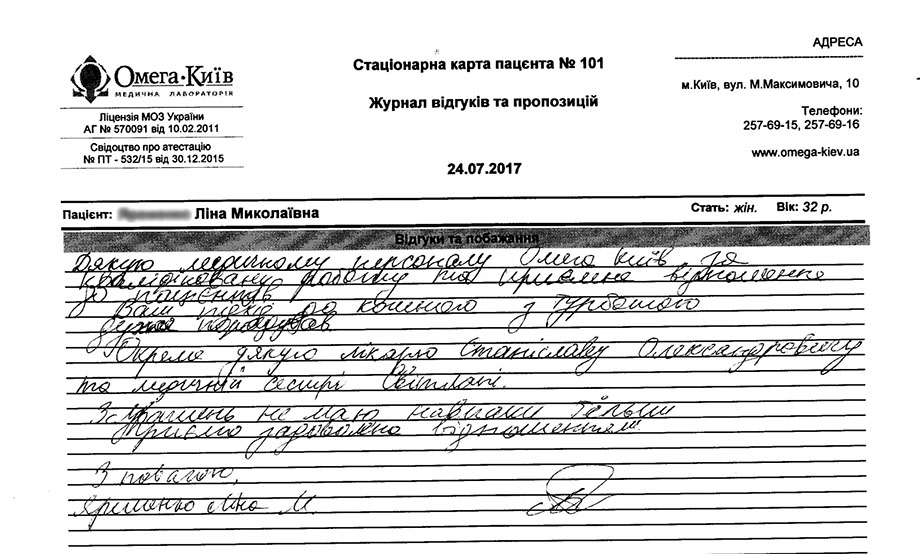 АДРЕСА
Омега·Київ
МЕДИЧНА ЛАБОРАТОРІЯ
Ліцензія МОЗ України
АГ № 570091 від 10.02.2011
Свідоцтво про атестацію
№ ПТ - 532/15 від 30.12.2015
Стаціонарна карта пацєнта № 101
Журнал відгуків та пропозицій
24.07.2017
м.Київ, вул. М.Максимовича, 10
Телефони:
257-69-15, 257-69-16
www.omega-kiev.ua
Пацієнт: Ліна Миколаївна
Стать: жін. Вік: 32 р.
Відгуки та побажання
Дякую медичному персоналу Омега Київ, за
кваліфіковану роботу та приємне відношення
до пацієнтів
Ваш підхід до кожного з турботою
дуже порадував
Окремо дякую лікарю Станіславу Олександровичу
та медичній сестрі Світлані.
не маю навпаки більш
задоволена відношенням
З повагою,
Яременко Ліна М.